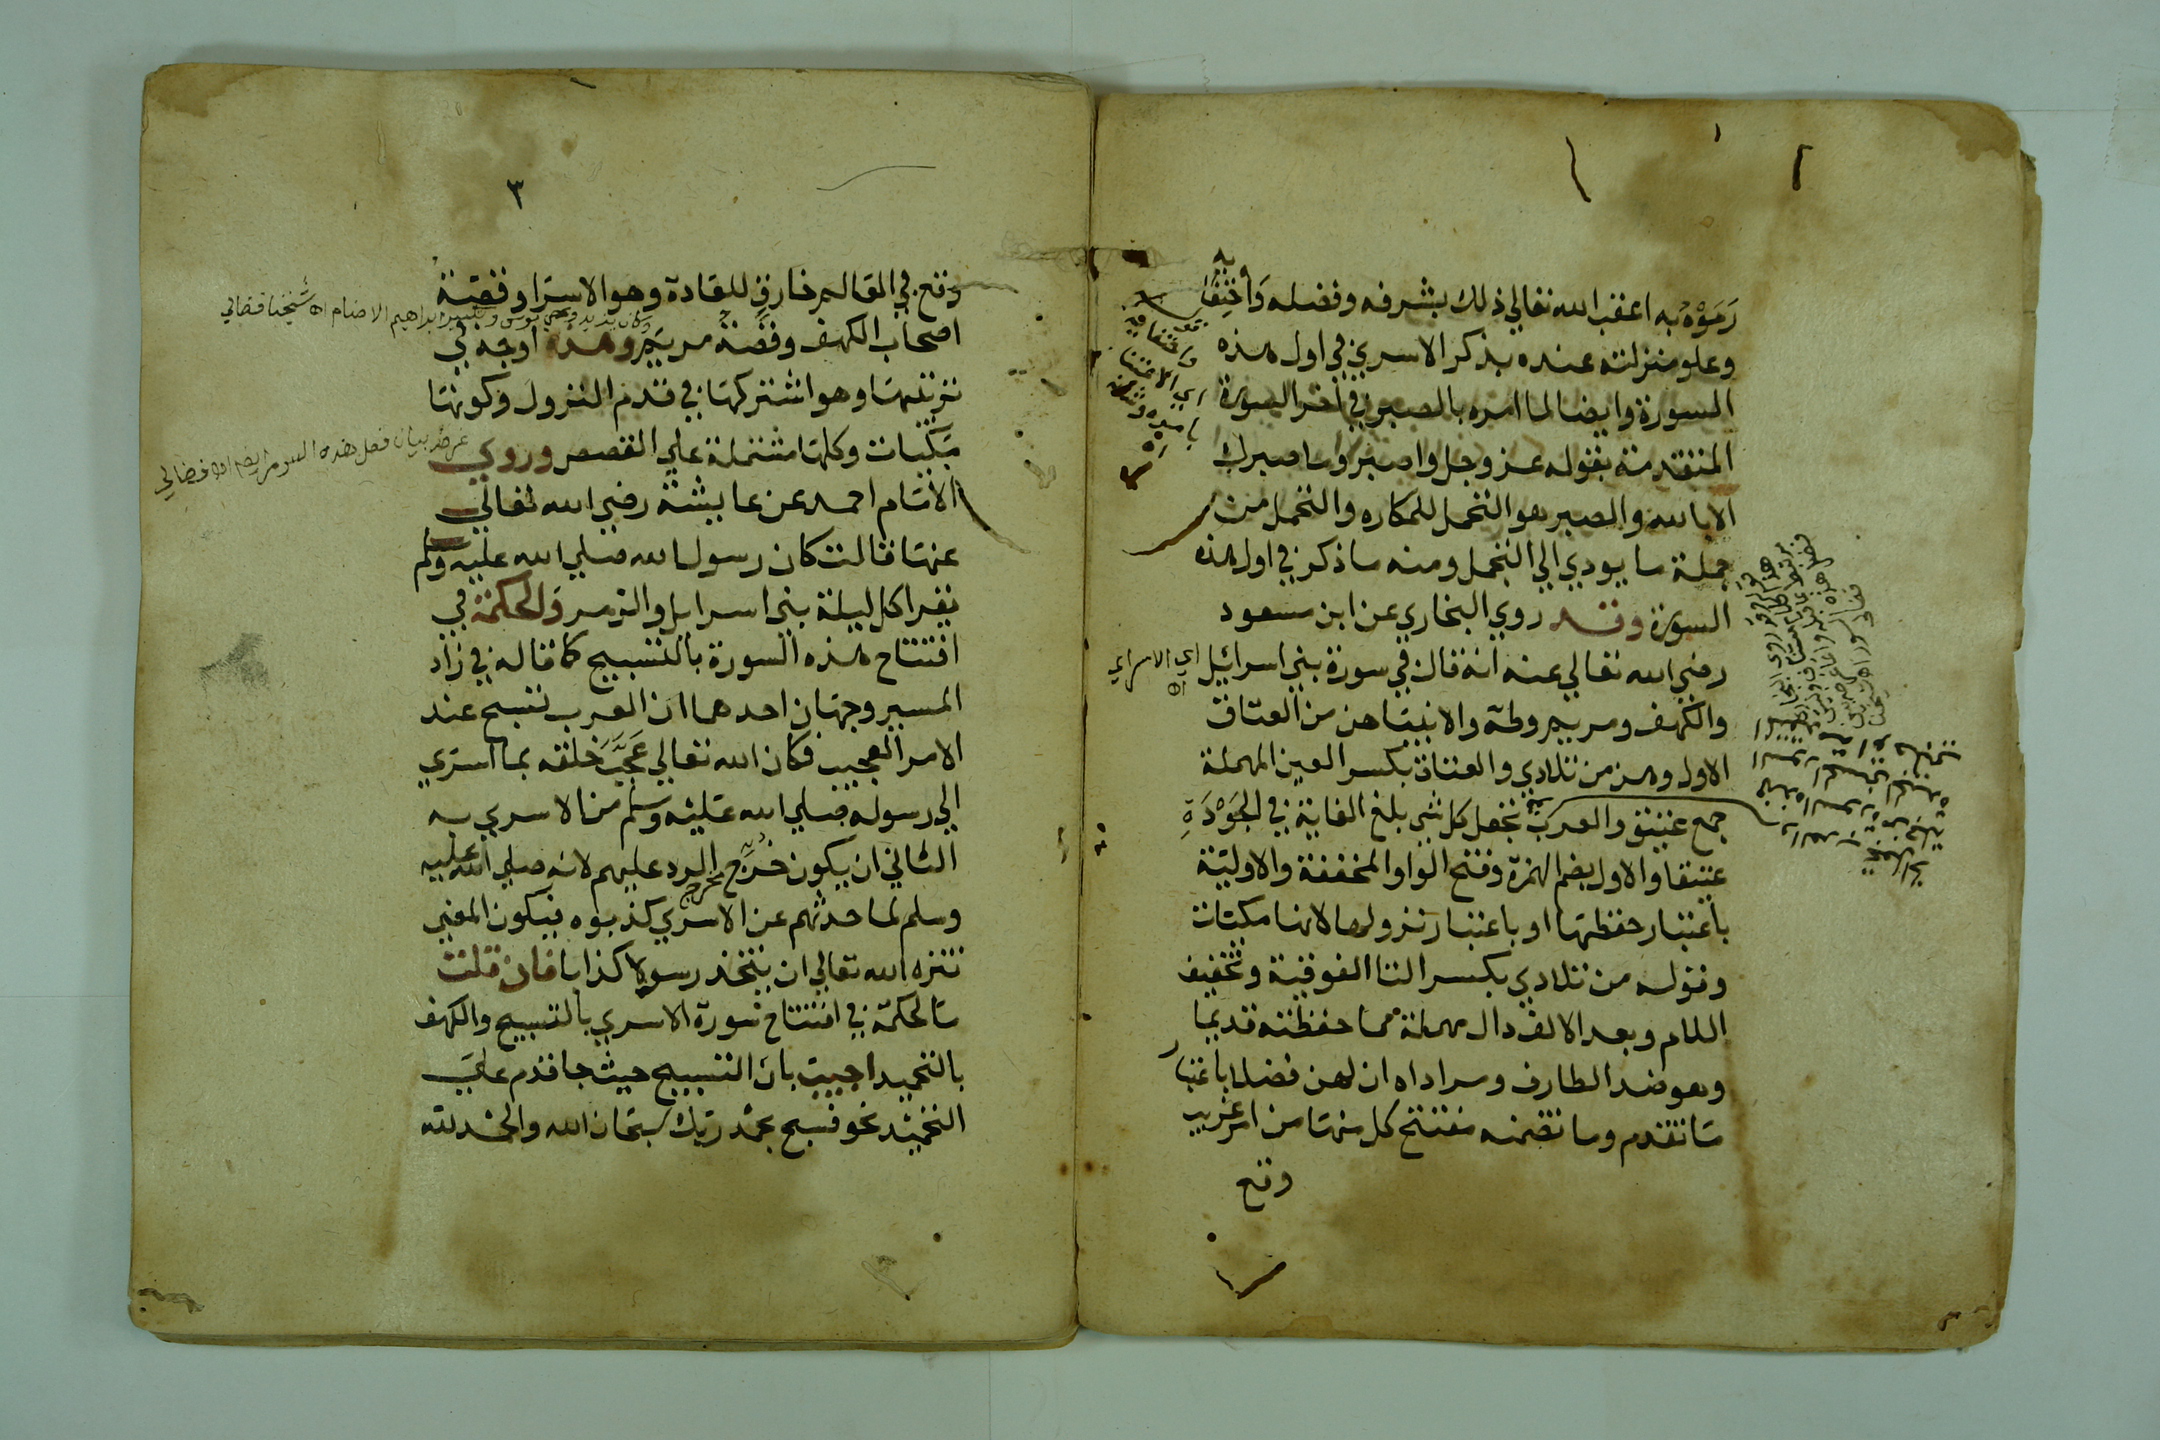 رموه به اعقب الله تعالي ذلك بشرفه وفضله واختفايه
وعلو منزلته عنده بذكر الاسري في اول هذه
السورة وايضا لما امره بالصبر في اخر السورة
المتقدمة بقوله عز وجل واصبر وما صبرك
الا بالله والصبر هو التحمل للمكاره والتحمل من
جملة ما يودي الي التجمل ومنه ما ذكر في اول هذه
السورة وقد روي البخاري عن ابن مسعود
رضي الله تعالي عنه انه قال في سورة بني اسرائيل
اي الاسراي اه
والكهف ومريم وطه والانبيا هن من العتاق
الاول وهن من تلادي والعتاق بكسر العين المهملة
جمع عتيق والعرب تجعل كل شي بلغ الغاية في الجَوْدَةِ
عتيقا والاول بضم الهمزة وفتح الواو المخففة والاولية
باعتبار حفظها او باعتبار نزولها لانها مكيات
وقوله من تلادي بكسر التا الفوقية وتخفيف
اللام وبعد الالف دال مهملة مما حفظته قديما
وهو ضد الطارف ومراداه ان لهن فضلا باعتبار
ما تقدم وما تضمنه مفتتح كل منها من امر غريب
وقع
٣
وقع في العالم خارق للعادة وهو الاسرا وقصة
اصحاب الكهف وقصة مريم وهذه اوجه في
ترتيبها وهو اشتركها في قدم النزول وكونها
مكيات وكلها مشتملة علي القصص وروي
الامام احمد عن عايشة رضي الله تعالي
عنها قالت كان رسول الله صلي الله عليه وسلم
يقرا كل ليلة بني اسرايل والزمر والحكمة في
افتتاح هذه السورة بالتسبيح كما قاله في زاد
المسير وجهان احدهما ان العرب تسبح عند
الامر العجيب فكان الله تعالي عَجَّبَ خلقه بما اسري
الي رسوله صلي الله عليه وسلم من الاسري به
الثاني ان يكون خرج مخرج الرد عليهم لانه صلي الله عليه
وسلم لما حدثهم عن الاسري كذبوه فيكون المعني
تنزه الله تعالي ان يتخذ رسولا كذابا فان قلت
ما الحكمة في افتتاح سورة الاسري بالتسبيح والكهف
بالتحميد اجيب بان التسبيح حيث جا قدم علي
التحميد نحو فسبح بحمد ربك سبحان الله والحمد لله